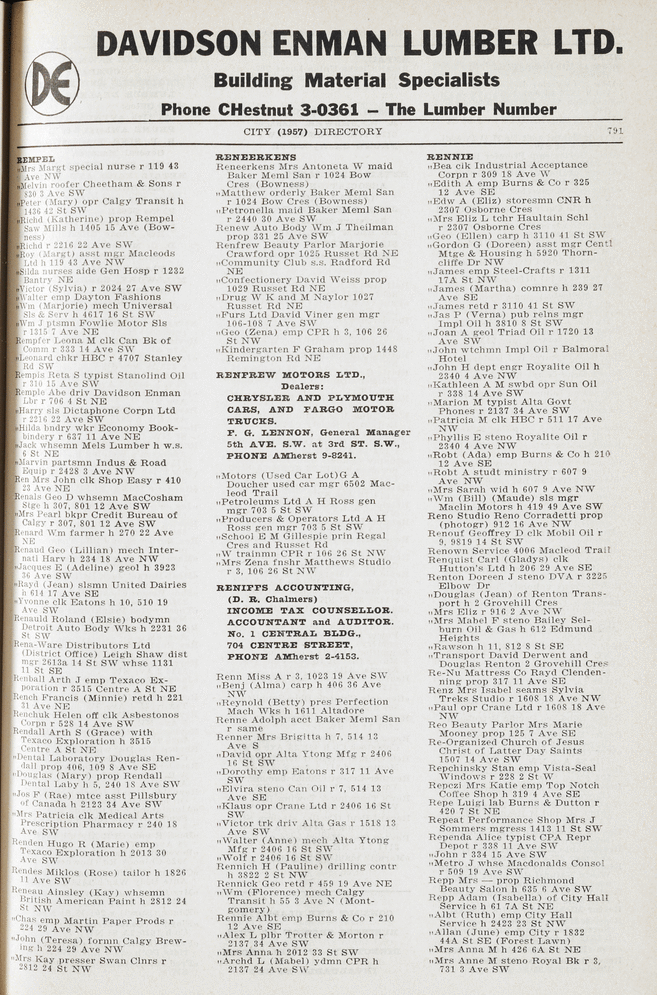 DE
DAVIDSON ENMAN LUMBER LTD.
Building Material Specialists
Phone CHestnut 3-0361 – The Lumber Number
CITY (1957) DIRECTORY 791
REMPEL
„Mrs Margt special nurse r 119 43
Ave NW
„Melvin roofer Cheetham & Sons r
830 3 Ave SW
„Peter (Mary) opr Calgy Transit h
1436 42 St SW
„Richd (Katherine) prop Rempel
Saw Mills h 1405 15 Ave (Bow-
ness)
„Richd r 2216 22 Ave SW
„Roy (Margt) asst mgr Macleods
Ltd h 119 43 Ave NW
„Silda nurses aide Gen Hosp r 1232
Bantry NE
„Victor (Sylvia) r 2024 27 Ave SW
„Walter emp Dayton Fashions
„Wm (Marjorie) mech Universal
Sls & Serv h 4617 16 St SW
„Wm J ptsmn Fowlie Motor Sls
r 1315 7 Ave NE
Rempfer Leona M clk Can Bk of
Comm r 333 14 Ave SW
„Leonard chkr HBC r 4707 Stanley
Rd SW
Rempis Reta S typist Stanolind Oil
r 310 15 Ave SW
Remple Abe driv Davidson Enman
Lbr r 706 4 St NE
„Harry sls Dictaphone Corpn Ltd
r 2216 22 Ave SW
„Hilda bndry wkr Economy Book-
bindery r 637 11 Ave NE
„Jack whsemn Mels Lumber h w.s.
6 St NE
„Marvin partsmn Indus & Road
Equip r 2428 3 Ave NW
Ren Mrs John clk Shop Easy r 410
23 Ave NE
Renals Geo D whsemn MacCosham
Stge h 307, 801 12 Ave SW
„Mrs Pearl bkpr Credit Bureau of
Calgy r 307, 801 12 Ave SW
Renard Wm farmer h 270 22 Ave
NE
Renaud Geo (Lillian) mech Inter-
natl Harv h 234 18 Ave NW
„Jacques E (Adeline) geol h 3923
36 Ave SW
„Rayd (Jean) slsmn United Dairies
h 614 17 Ave SE
„Yvonne clk Eatons h 10, 510 19
Ave SW
Renauld Roland (Elsie) bodymn
Detroit Auto Body Wks h 2231 36
St SW
Rena-Ware Distributors Ltd
(District Office) Leigh Shaw dist
mgr 2613a 14 St SW whse 1131
11 St SE
Renball Arth J emp Texaco Ex-
poration r 3515 Centre A St NE
Rench Francis (Minnie) retd h 221
31 Ave NE
Renchuk Helen off clk Asbestonos
Corpn r 528 14 Ave SW
Rendall Arth S (Grace) with
Texaco Exploration h 3515
Centre A St NE
„Dental Laboratory Douglas Ren-
dall prop 406, 109 8 Ave SE
„Douglas (Mary) prop Rendall
Dental Laby h 5, 240 18 Ave SW
„Jos F (Rae) mtce asst Pillsbury
of Canada h 2123 34 Ave SW
„Mrs Patricia clk Medical Arts
Prescription Pharmacy r 240 18
Ave SW
Renden Hugo R (Marie) emp
Texaco Exploration h 2013 30
Ave SW
Rendes Miklos (Rose) tailor h 1826
11 Ave SW
Reneau Ainsley (Kay) whsemn
British American Paint h 2812 24
St NW
„Chas emp Martin Paper Prods r
224 29 Ave NW
„John (Teresa) formn Calgy Brew-
ing h 224 29 Ave NW
„Mrs Kay presser Swan Clnrs r
2812 24 St NW
RENEERKENS
Reneerkens Mrs Antoneta W maid
Baker Meml San r 1024 Bow
Cres (Bowness)
„Matthew orderly Baker Meml San
r 1024 Bow Cres (Bowness)
„Petronella maid Baker Meml San
r 2440 30 Ave SW
Renew Auto Body Wm J Theilman
prop 331 25 Ave SW
Renfrew Beauty Parlor Marjorie
Crawford opr 1025 Russet Rd NE
„Community Club s.s. Radford Rd
NE
„Confectionery David Weiss prop
1029 Russet Rd NE
„Drug W K and M Naylor 1027
Russet Rd NE
„Furs Ltd David Viner gen mgr
106-108 7 Ave SW
„Geo (Zena) emp CPR h 3, 106 26
St NW
„Kindergarten F Graham prop 1448
Remington Rd NE
RENFREW MOTORS LTD.,
Dealers:
CHRYSLER AND PLYMOUTH
CARS, AND FARGO MOTOR
TRUCKS.
F. G. LENNON, General Manager
5th AVE. S.W. at 3rd ST. S.W.,
PHONE AMherst 9-8241.
„Motors (Used Car Lot)G A
Doucher used car mgr 6502 Mac-
leod Trail
„Petroleums Ltd A H Ross gen
mgr 703 5 St SW
„Producers & Operators Ltd A H
Ross gen mgr 703 5 St SW
„School E M Gillespie prin Regal
Cres and Russet Rd
„W trainmn CPR r 106 26 St NW
„Mrs Zena fnshr Matthews Studio
r 3, 106 26 St NW
RENIFFS ACCOUNTING,
(D. R. Chalmers)
INCOME TAX COUNSELLOR.
ACCOUNTANT and AUDITOR.
No. 1 CENTRAL BLDG.,
704 CENTRE STREET,
PHONE AMherst 2-4153.
Renn Miss A r 3, 1023 19 Ave SW
„Benj (Alma) carp h 406 36 Ave
NW
„Reynold (Betty) pres Perfection
Mach Wks h 1611 Altadore
Renne Adolph acct Baker Meml San
r same
Renner Mrs Brigitta h 7, 514 13
Ave S
„David opr Alta Ytong Mfg r 2406
16 St SW
„Dorothy emp Eatons r 317 11 Ave
SW
„Elvira steno Can Oil r 7, 514 13
Ave SE
„Klaus opr Crane Ltd r 2406 16 St
SW
„Victor trk driv Alta Gas r 1518 13
Ave SW
„Walter (Anne) mech Alta Ytong
Mfg r 2406 16 St SW
„Wolf r 2406 16 St SW
Rennich H (Pauline) drilling contr
h 3822 2 St NW
Rennick Geo retd r 459 19 Ave NE
„Wm (Florence) mech Calgy
Transit h 55 3 Ave N (Mont-
gomery)
Rennie Albt emp Burns & Co r 210
12 Ave SE
„Alex L plbr Trotter & Morton r
2137 34 Ave SW
„Mrs Anna h 2012 33 St SW
„Archd L (Mabel) ydmn CPR h
2137 24 Ave SW
RENNIE
„Bea clk Industrial Acceptance
Corpn r 309 18 Ave W
„Edith A emp Burns & Co r 325
12 Ave SE
„Edw A (Eliz) storesmn CNR h
2307 Osborne Cres
„Mrs Eliz L tchr Haultain Schl
r 2307 Osborne Cres
„Geo (Ellen) carp h 3110 41 St SW
„Gordon G (Doreen) asst mgr Centl
Mtge & Housing h 5920 Thorn-
cliffe Dr NW
„James emp Steel-Crafts r 1311
17A St NW
„James (Martha) comnre h 239 27
Ave SE
„James retd r 3110 41 St SW
„Jas P (Verna) pub relns mgr
Impl Oil h 3810 8 St SW
„Joan A geol Triad Oil r 1720 13
Ave SW
„John wtchmn Impl Oil r Balmoral
Hotel
„John H dept engr Royalite Oil h
2340 4 Ave NW
„Kathleen A M swbd opr Sun Oil
r 338 14 Ave SW
„Marion M typist Alta Govt
Phones r 2137 34 Ave SW
„Patricia M clk HBC r 511 17 Ave
NW
„Phyllis E steno Royalite Oil r
2340 4 Ave NW
„Robt (Ada) emp Burns & Co h 210
12 Ave SE
„Robt A studt ministry r 607 9
Ave NW
„Mrs Sarah wid h 607 9 Ave NW
„Wm (Bill) (Maude) sls mgr
Maclin Motors h 419 49 Ave SW
Reno Studio Reno Corradetti prop
(photogr) 912 16 Ave NW
Renouf Geoffrey D clk Mobil Oil r
9, 9819 14 St SW
Renown Service 4006 Macleod Trail
Renquist Carl (Gladys) clk
Hutton's Ltd h 206 29 Ave SE
Renton Doreen J steno DVA r 3225
Elbow Dr
„Douglas (Jean) of Renton Trans-
port h 2 Grovehill Cres
„Mrs Eliz r 916 2 Ave NW
„Mrs Mabel F steno Bailey Sel-
burn Oil & Gas h 612 Edmund
Heights
„Rawson h 11, 812 8 St SE
„Transport David Derwent and
Douglas Renton 2 Grovehill Cres
Re-Nu Mattress Co Rayd Clenden-
ning prop 317 11 Ave SE
Renz Mrs Isabel seams Sylvia
Treks Studio r 1608 18 Ave NW
„Paul opr Crane Ltd r 1608 18 Ave
NW
Reo Beauty Parlor Mrs Marie
Mooney prop 125 7 Ave SE
Re-Organized Church of Jesus
Christ of Latter Day Saints
1507 14 Ave SW
Repchinsky Stan emp Vista-Seal
Windows r 228 2 St W
Repczi Mrs Katie emp Top Notch
Coffee Shop h 319 4 Ave SE
Repe Luigi lab Burns & Dutton r
420 7 St NE
Repeat Performance Shop Mrs J
Sommers mgress 1413 11 St SW
Rependa Alice typist CPA Repr
Depot r 338 11 Ave SW
„John r 334 15 Ave SW
„Metro J whse Macdonalds Consol
r 509 19 Ave SW
Repp Mrs — prop Richmond
Beauty Salon h 635 6 Ave SW
Repp Adam (Isabella) of City Hall
Service h 61 7A St NE
„Albt (Ruth) emp City Hall
Service h 2423 23 St NW
„Allan (June) emp City r 1832
44A St SE (Forest Lawn)
„Mrs Anna M h 426 6A St NE
„Mrs Anne M steno Royal Bk r 3,
731 3 Ave SW